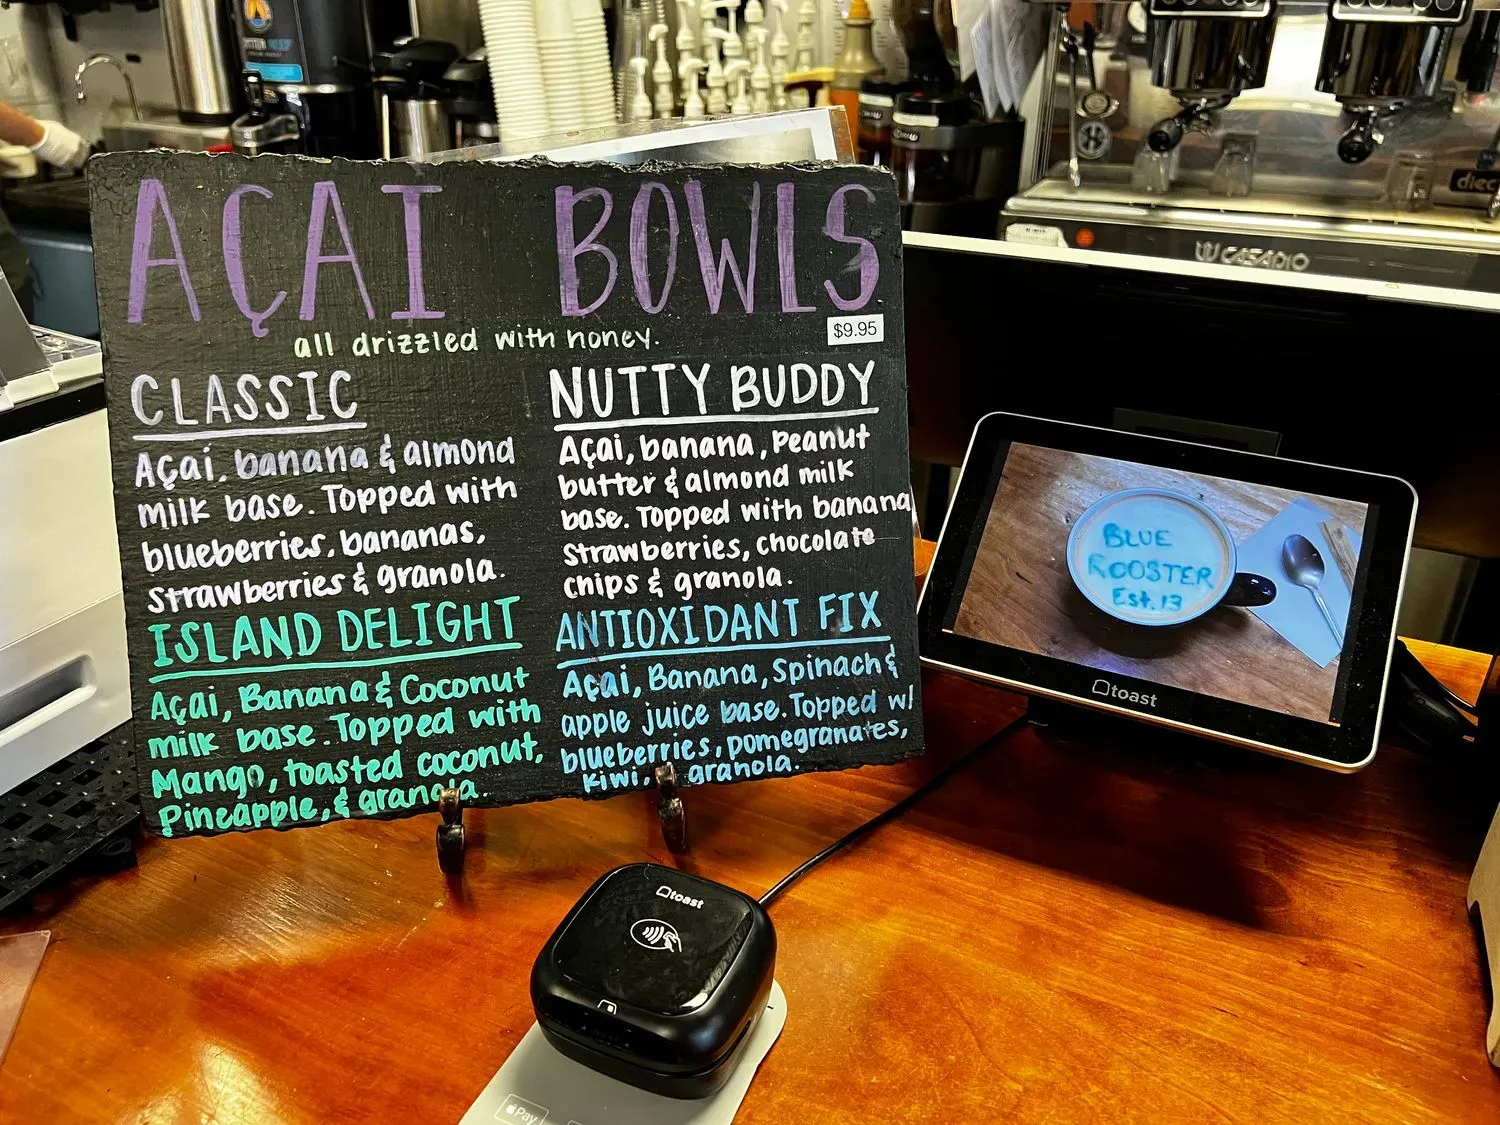 AÇAI BOWLS
all drizzled with honey.
$9.95
CLASSIC
Açai, banana & almond
milk base. Topped with
blueberries, bananas,
strawberries & granola.
NUTTY BUDDY
Açai, banana, peanut
butter & almond milk
base. Topped with banana
strawberries, chocolate
chips & granola.
ISLAND DELIGHT
Açai, Banana & Coconut
milk base. Topped with
Mango, toasted coconut,
Pineapple, & granola.
ANTIOXIDANT FIX
Açai, Banana, Spinach &
apple juice base. Topped w/
blueberries, pomegranates,
kiwi, granola.
BLUE
ROOSTER
Est. 13
toast
toast
Pay
CASADIO
diec